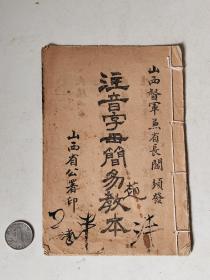 山西督軍兼省長閻 頒發
注音字母簡易教本
山西省公署印
趙